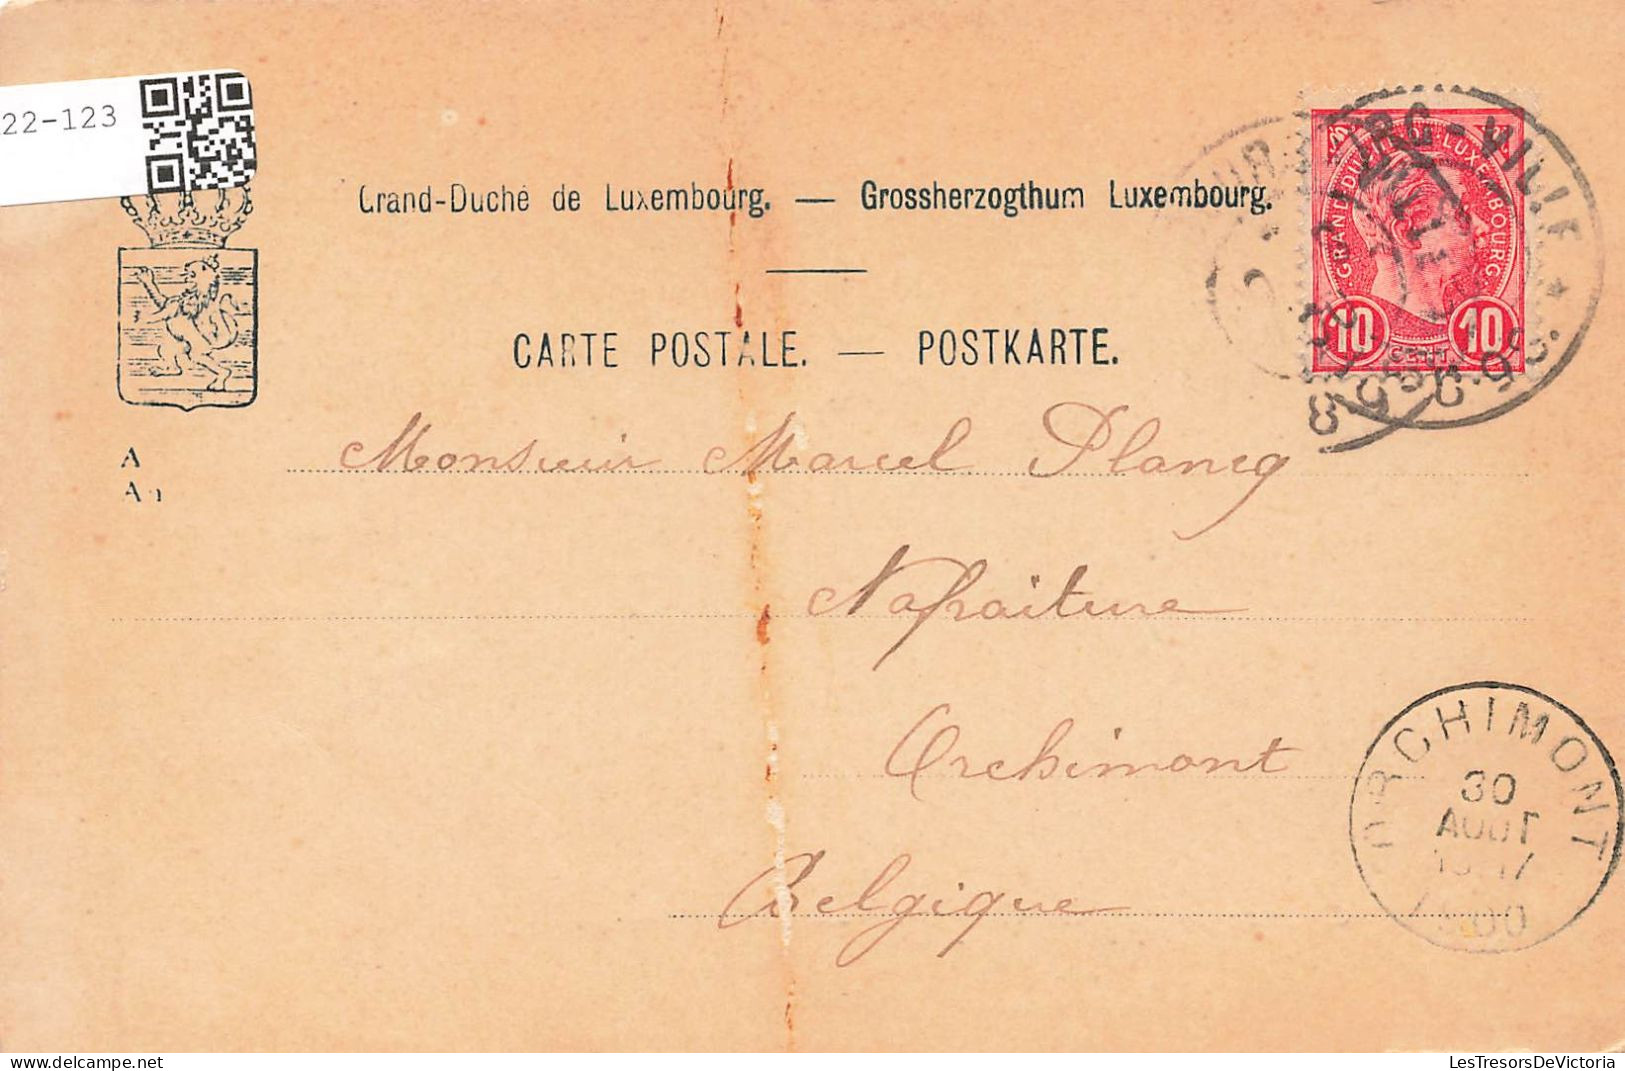 22-123
Grand-Duché de Luxembourg. — Grossherzogthum Luxembourg.
CARTE POSTALE. — POSTKARTE.
GRAND DUCHÉ DE LUXEMBOURG
10 CENT. 10
A
An
Monsieur Marcel Plancq
Nafraiture
Orchimont
Belgique
ORCHIMONT
30
AOUT
LesTresorsDeVictoria